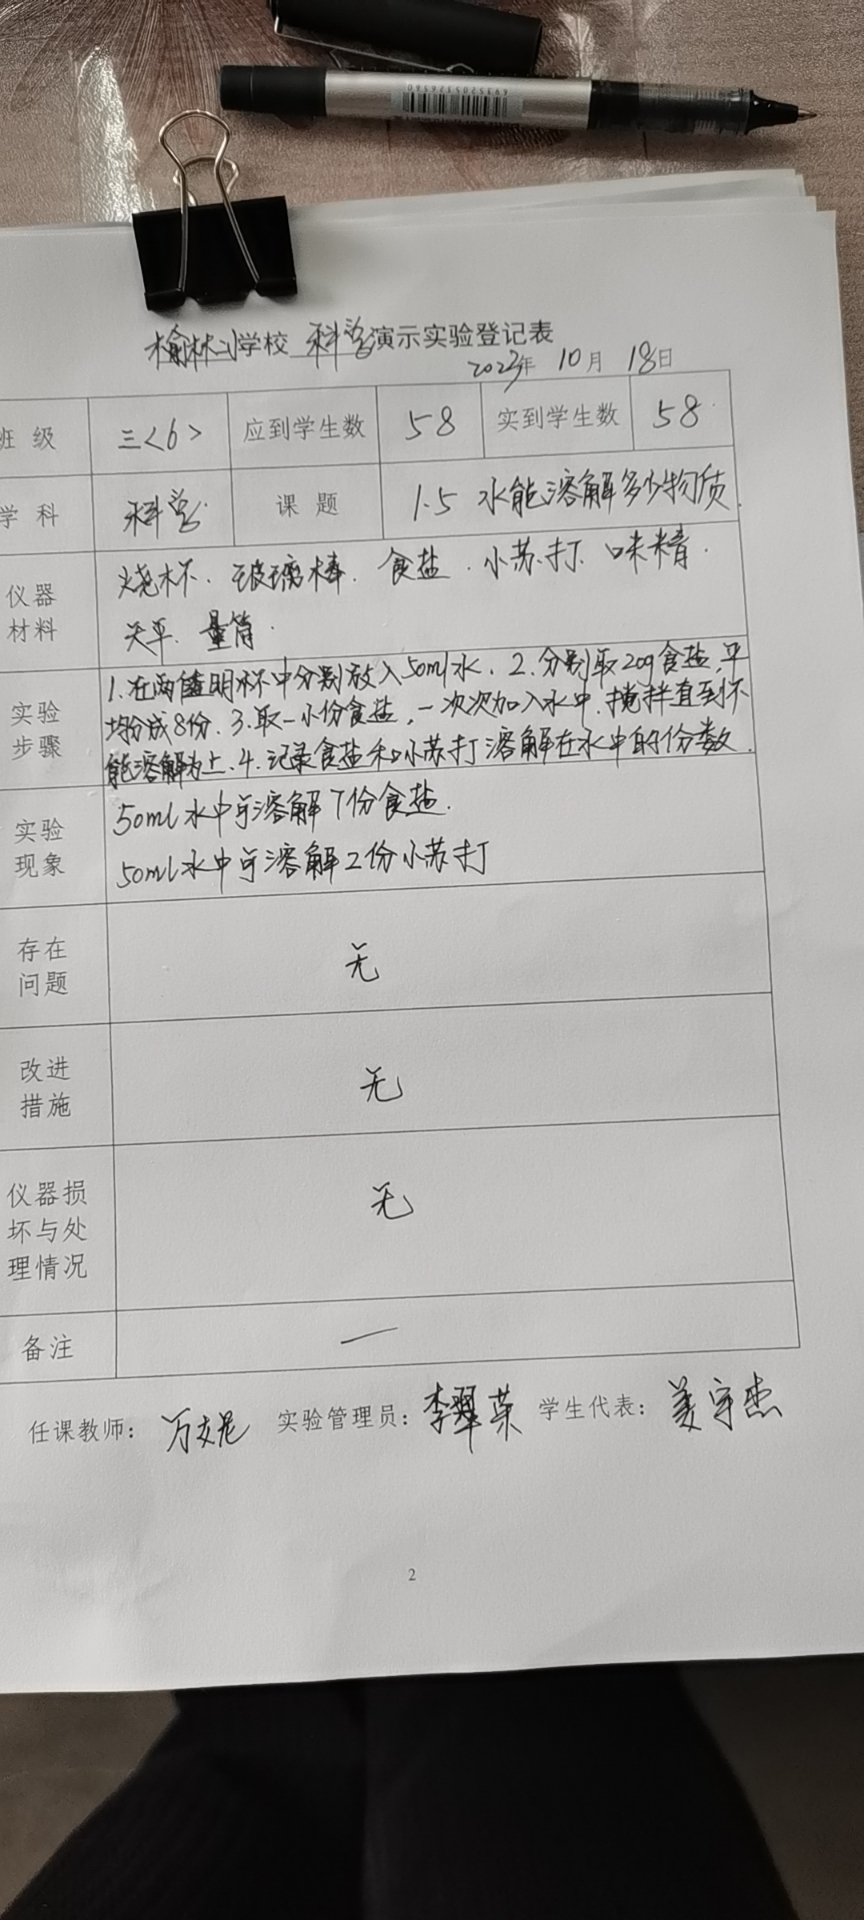 6935205326340
榆林小学校 科学演示实验登记表
2023年 10月 18日
班级 三<6> 应到学生数 58 实到学生数 58
学科 科学 课题 1.5 水能溶解多少物质
仪器材料 烧杯、玻璃棒、食盐、小苏打、味精、
天平、量筒.
实验步骤 1.在两个透明杯中分别放入50ml水.2.分别取20g食盐,平
均分成8份.3.取一小份食盐,一次次加入水中,搅拌直到不
能溶解为止.4.记录食盐和小苏打溶解在水中的份数.
实验现象 50ml水中可溶解7份食盐.
50ml水中可溶解2份小苏打
存在问题 无
改进措施 无
仪器损坏与处理情况 无
备注 —
任课教师: 实验管理员:李翠荣 学生代表:姜宇杰
2